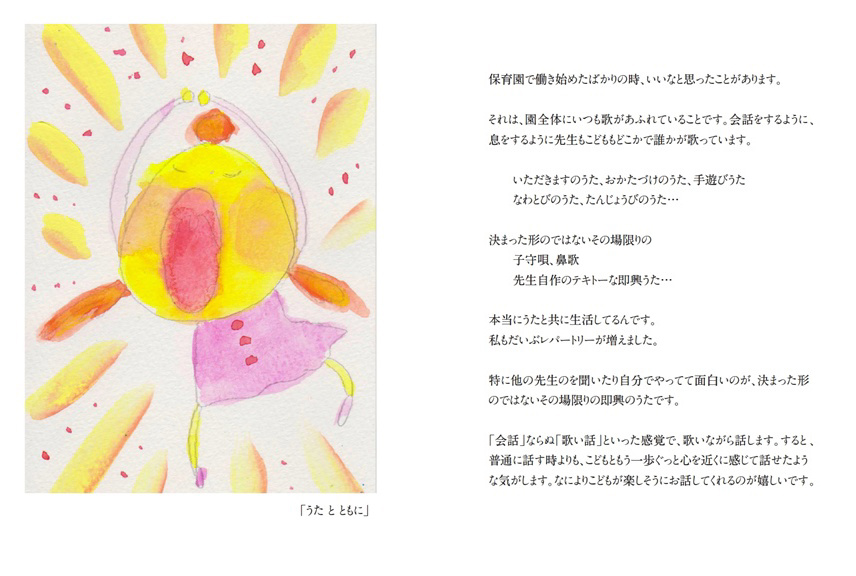 保育園で働き始めたばかりの時、いいなと思ったことがあります。
それは、園全体にいつも歌があふれていることです。会話をするように、
息をするように先生もこどももどこかで誰かが歌っています。
いただきますのうた、おかたづけのうた、手遊びうた
なわとびのうた、たんじょうびのうた…
決まった形のではないその場限りの
子守唄、鼻歌
先生自作のテキトーな即興うた…
本当にうたと共に生活してるんです。
私もだいぶレパートリーが増えました。
特に他の先生のを聞いたり自分でやってて面白いのが、決まった形
のではないその場限りの即興のうたです。
「会話」ならぬ「歌い話」といった感覚で、歌いながら話します。すると、
普通に話す時よりも、こどもともう一歩ぐっと心を近くに感じて話せたよう
な気がします。なによりこどもが楽しそうにお話してくれるのが嬉しいです。
「うた と ともに」